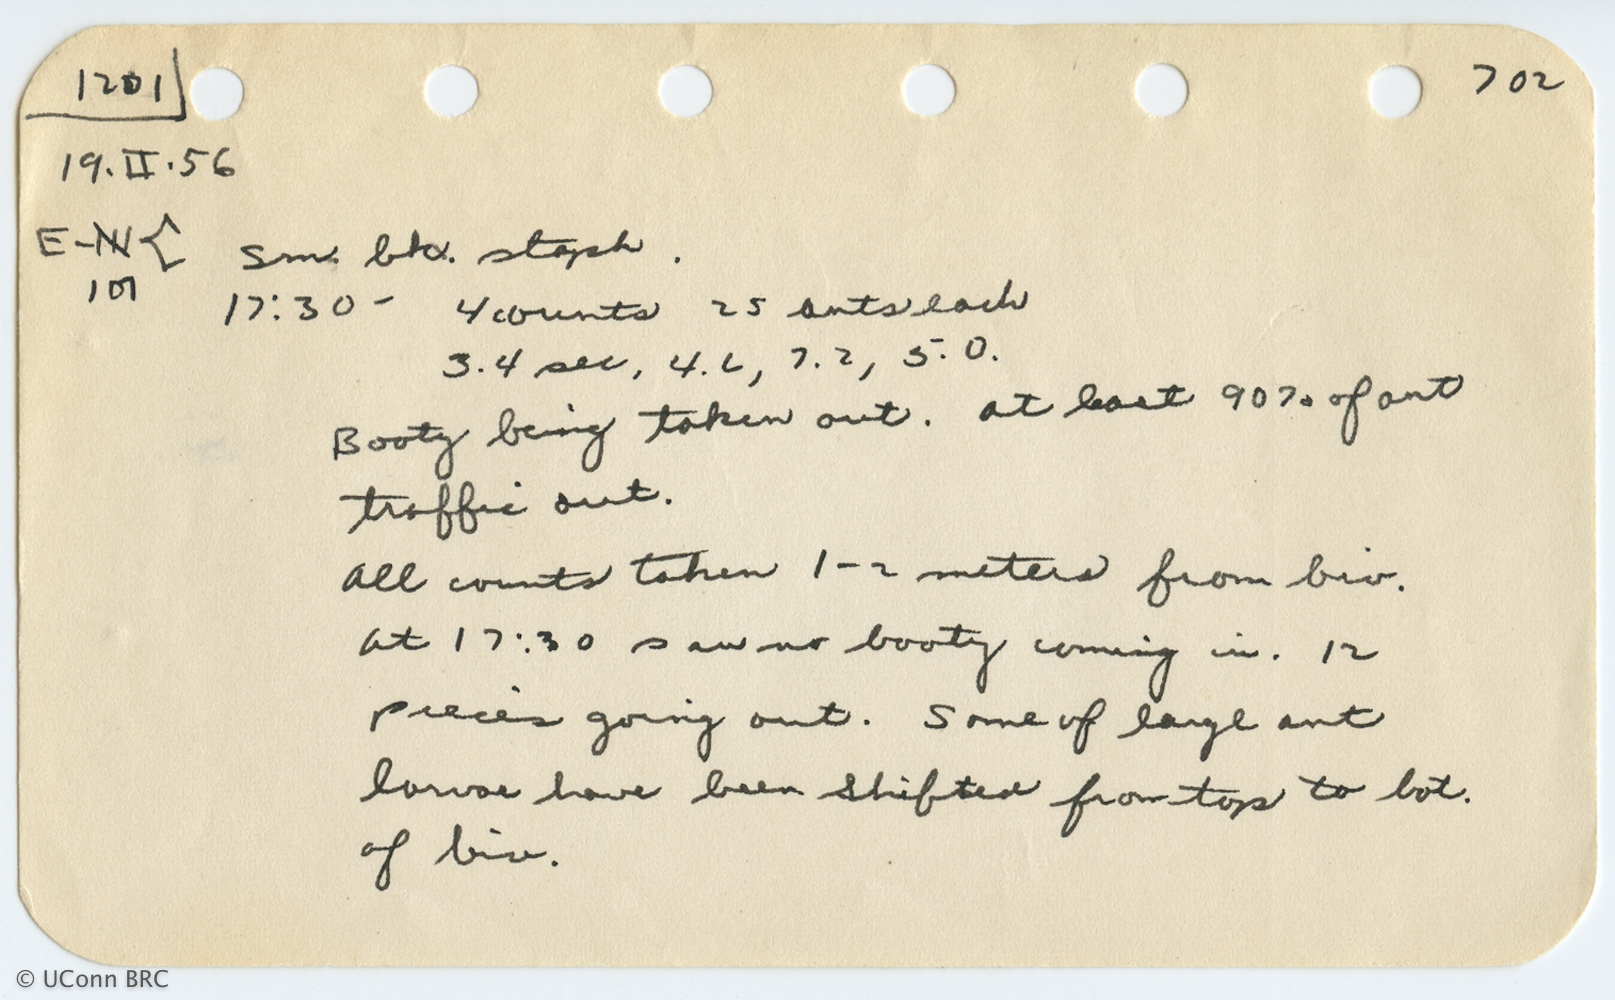 1201
702
19.II.56
E-N
107
Sm. blk. staph.
17:30 - 4 counts 25 ants each
3.4 sec, 4.6, 7.2, 5.0.
Booty being taken out. At least 90% of ant
traffic out.
All counts taken 1-2 meters from biv.
At 17:30 saw no booty coming in. 12
pieces going out. Some of large ant
larvae have been shifted from top to bot.
of biv.
© UConn BRC